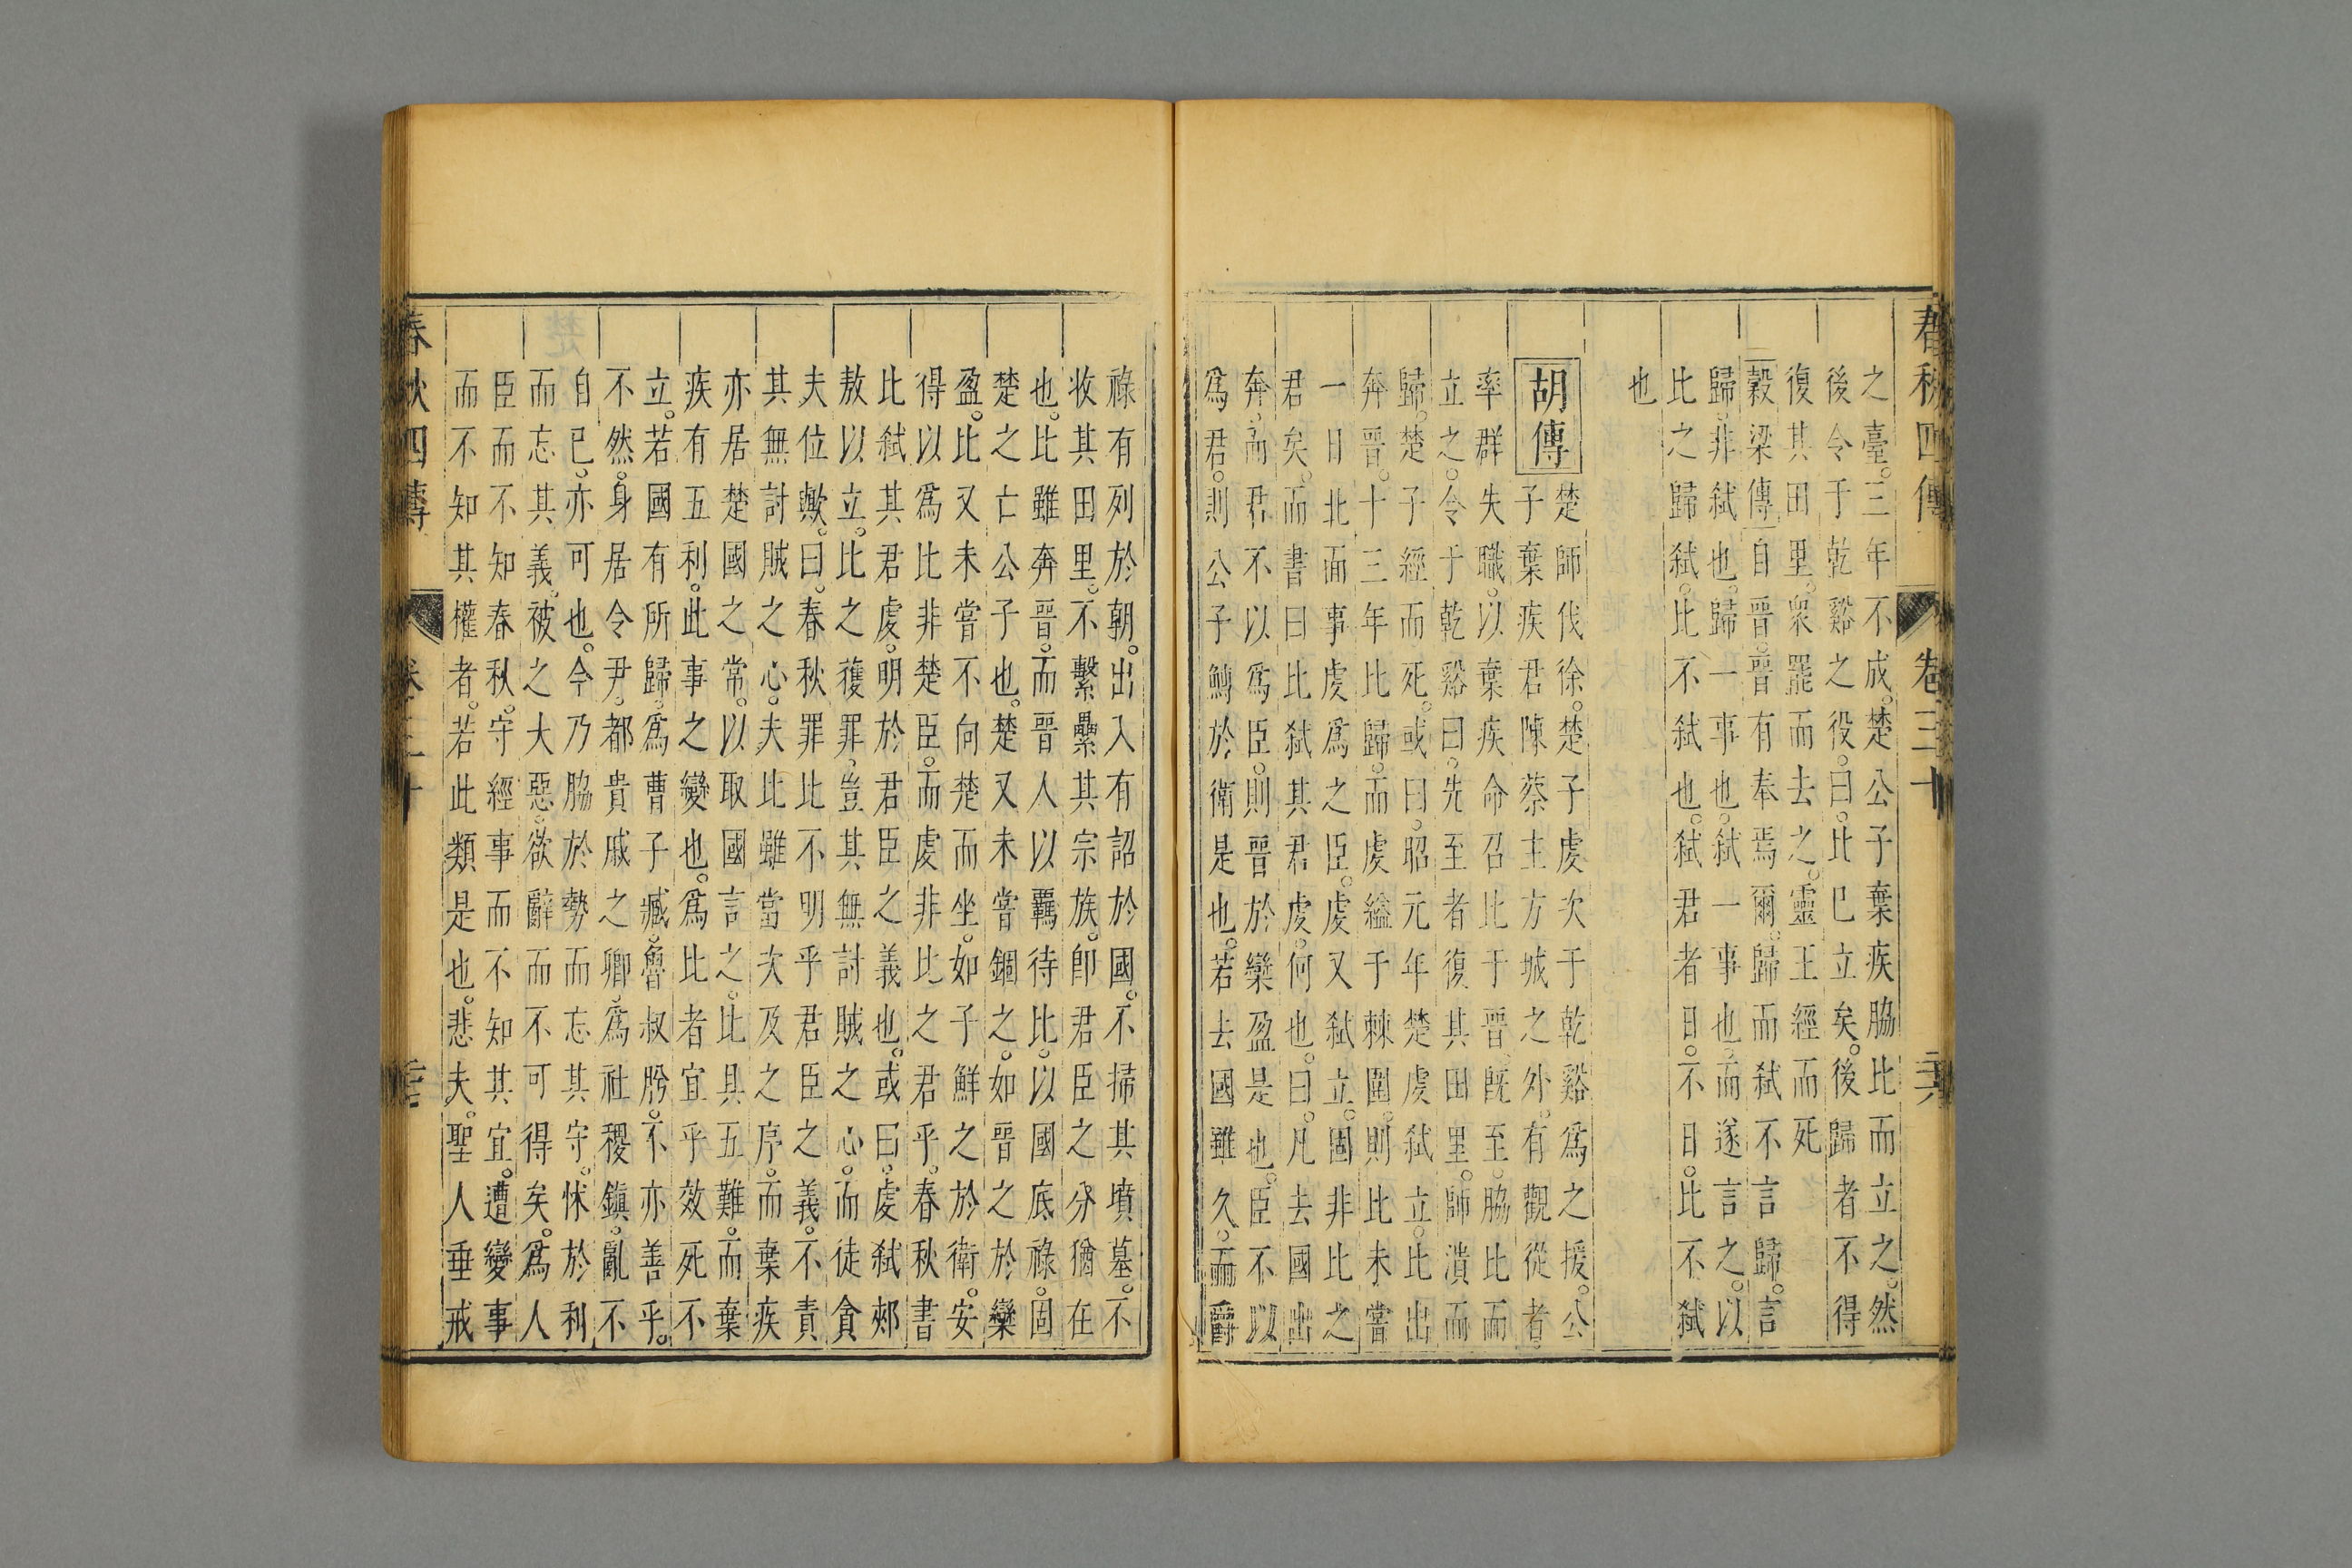 春秋四傳 卷三十 二六
之臺。三年不成。楚公子棄疾脇比而立之。然
後令于乾谿之役。曰。比已立矣。後歸者不得
復其田里。衆罷而去之。靈王經而死
穀梁傳 自晉。晉有奉焉爾。歸而弑不言歸。言
歸。非弑也。歸一事也。弑一事也。而遂言之。以
比之歸弑。比不弑也。弑君者日。不日。比不弑
也
胡傳
楚師伐徐。楚子虔次于乾谿。爲之援。公
子棄疾君陳蔡。主方城之外。有觀從者
率群失職。以棄疾命召比于晉。旣至。脇比而
立之。令于乾谿曰。先至者復其田里。師潰而
歸。楚子經而死。或曰。昭元年楚虔弑立。比出
奔晉。十三年比歸。而虔縊于棘圍。則比未嘗
一日北面事虔爲之臣。虔又弑立。固非比之
君矣。而書曰比弑其君虔。何也。曰。凡去國出
奔。而君不以爲臣。則晉於欒盈是也。臣不以
爲君。則公子鱄於衛是也。若去國雖久。而爵
祿有列於朝。出入有詔於國。不掃其墳墓。不
收其田里。不繫纍其宗族。即君臣之分猶在
也。比雖奔晉。而晉人以羈待比。以國底祿。固
楚之亡公子也。楚又未嘗錮之。如晉之於欒
盈。比又未嘗不向楚而坐。如子鮮之於衛。安
得以爲比非楚臣。而虔非比之君乎。春秋書
比弑其君虔。明於君臣之義也。或曰。虔弑郟
敖以立。比之獲罪。豈其無討賊之心。而徒貪
夫位歟。曰。春秋罪比不明乎君臣之義。不責
其無討賊之心。夫比雖當次及之序。而棄疾
亦居楚國之常。以取國言之。比具五難。而棄
疾有五利。此事之變也。爲比者宜乎效死不
立。若國有所歸。爲曹子臧。魯叔肹。不亦善乎。
不然。身居令尹。都貴戚之卿。爲社稷鎮。亂不
自已。亦可也。今乃脇於勢而忘其守。怵於利
而忘其義。被之大惡。欲辭而不可得矣。爲人
臣而不知春秋。守經事而不知其宜。遭變事
而不知其權者。若此類是也。悲夫。聖人垂戒
春秋四傳 卷三十